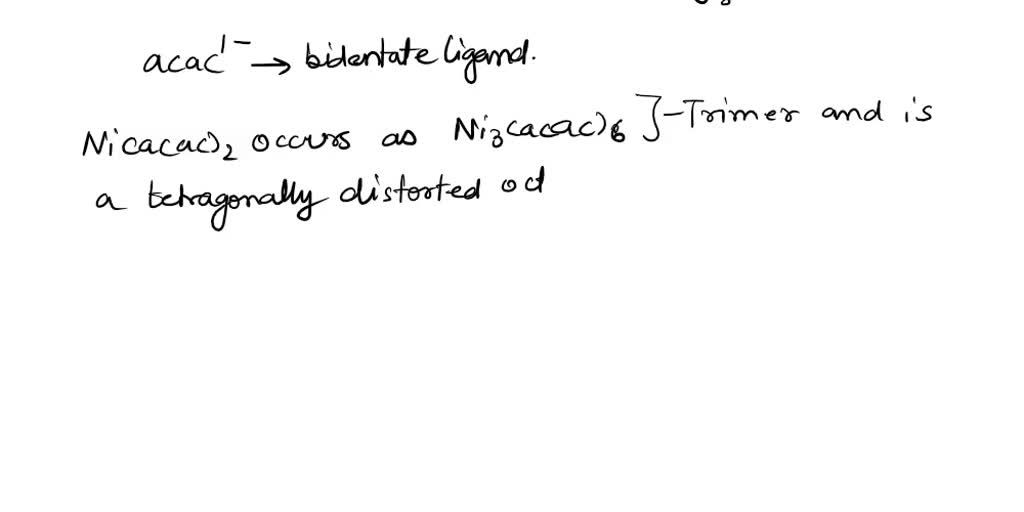 acac¹⁻ → bidentate ligand.
Ni(acac)₂ occurs as Ni₃(acac)₆ }-Trimer and is
a tetragonally distorted oct